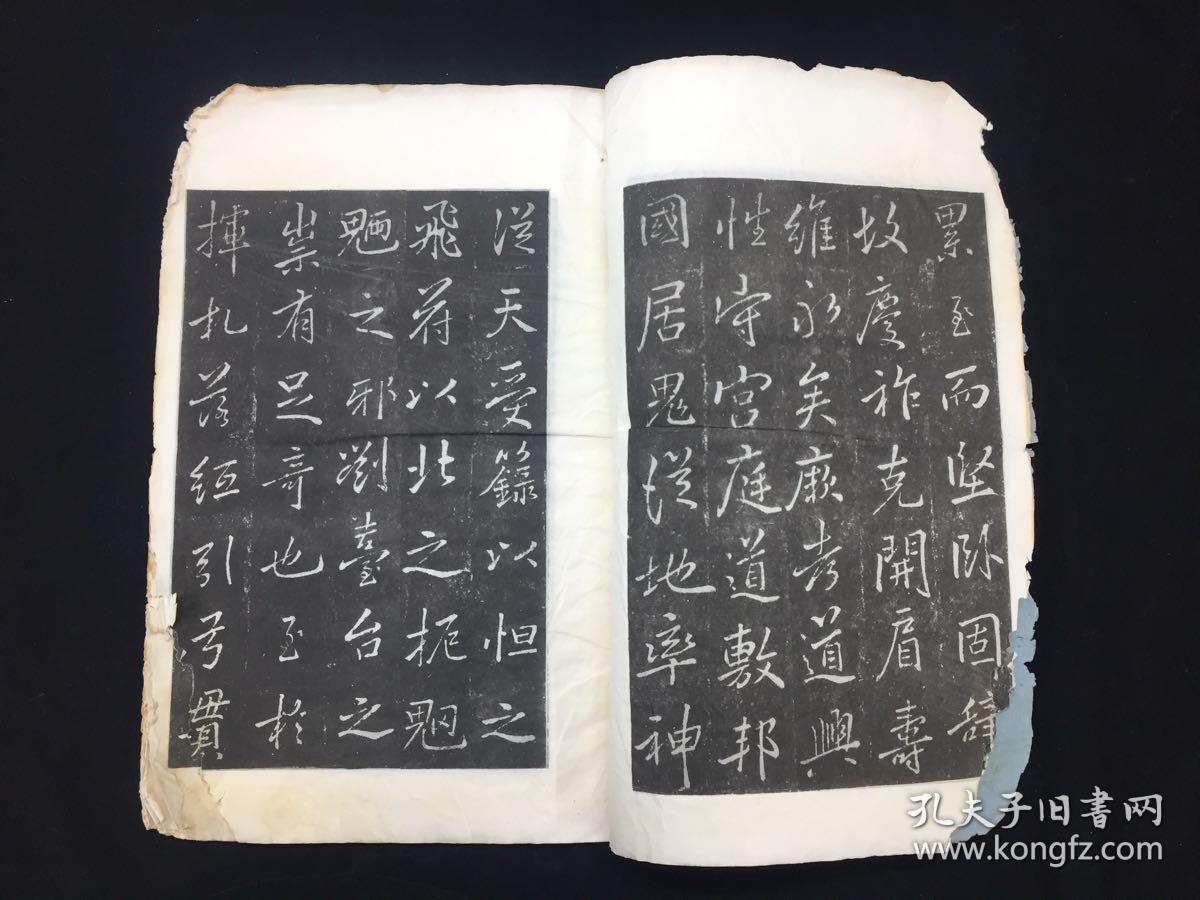 累至而堅卧固辭
故慶祚克開眉壽
維永矣厥考道興
性守宮庭道敷邦
國居鬼從地率神
從天受籙以怛之
飛符以北之扼魍
魎之邪劉臺台之
祟有足奇也至於
揮札落紙引弓貫
孔夫子旧书网
www.kongfz.com